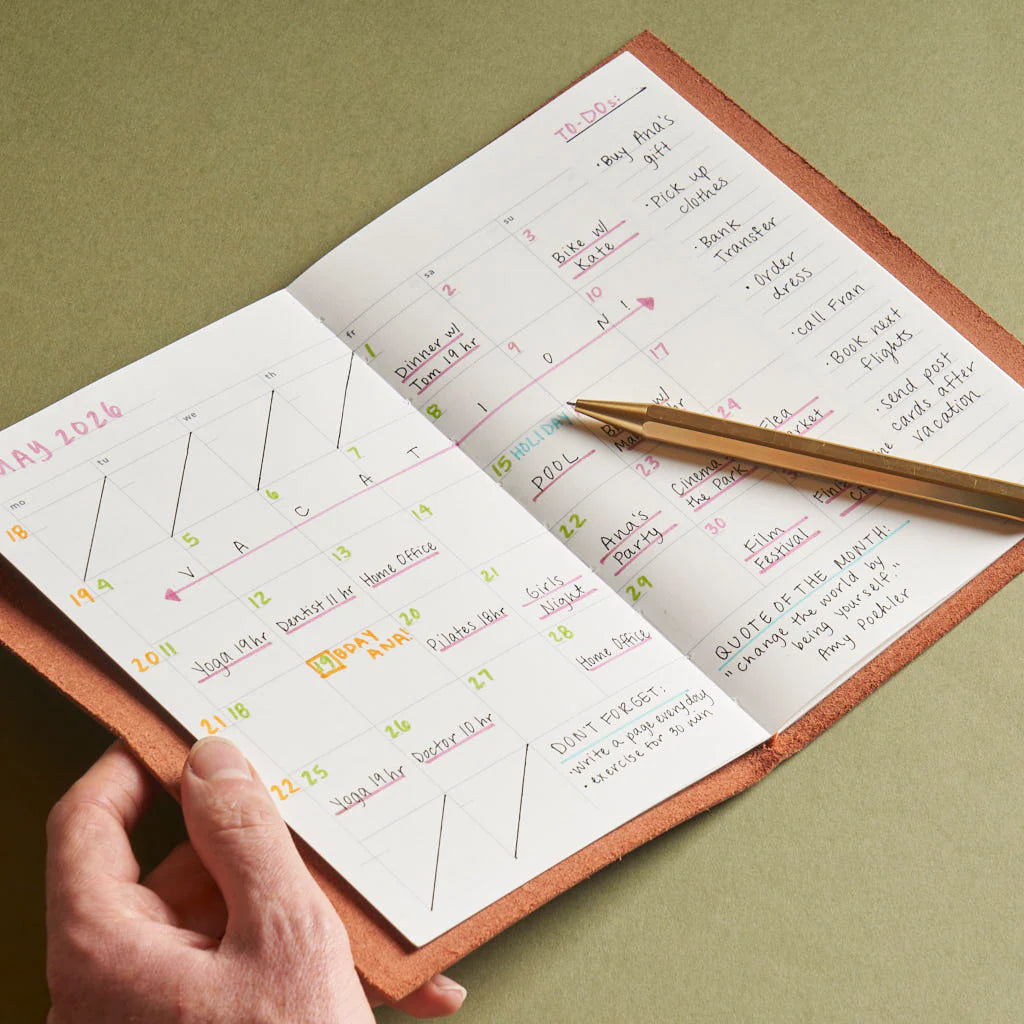 MAY 2026
mo
tu
we
th
18
19 4
5
6
7
V A C A T I O N !
20 11
12
Yoga 19hr
13
Dentist 11 hr
14
Home Office
21 18
19 BDAY
ANA!
20
21
Pilates 18hr
Girls
Night
22 25
26
Yoga 19hr
27
Doctor 10 hr
28
Home Office
DONT FORGET:
· write a page everyday
· exercise for 30 min
fr
sa
su
1
2
3
Dinner w/
Tom 19 hr
Bike w/
Kate
8
9
10
15 HOLIDAY
17
POOL
w/
hr
22
23
24
Ana's
Party
Cinema
the Park
Flea
29
30
Film
Festival
TO-DOs:
· Buy Ana's
gift
· Pick up
clothes
· Bank
Transfer
· Order
dress
· call Fran
· Book next
flights
· send post
cards after
vacation
QUOTE OF THE MONTH:
"change the world by
being yourself."
Amy Poehler